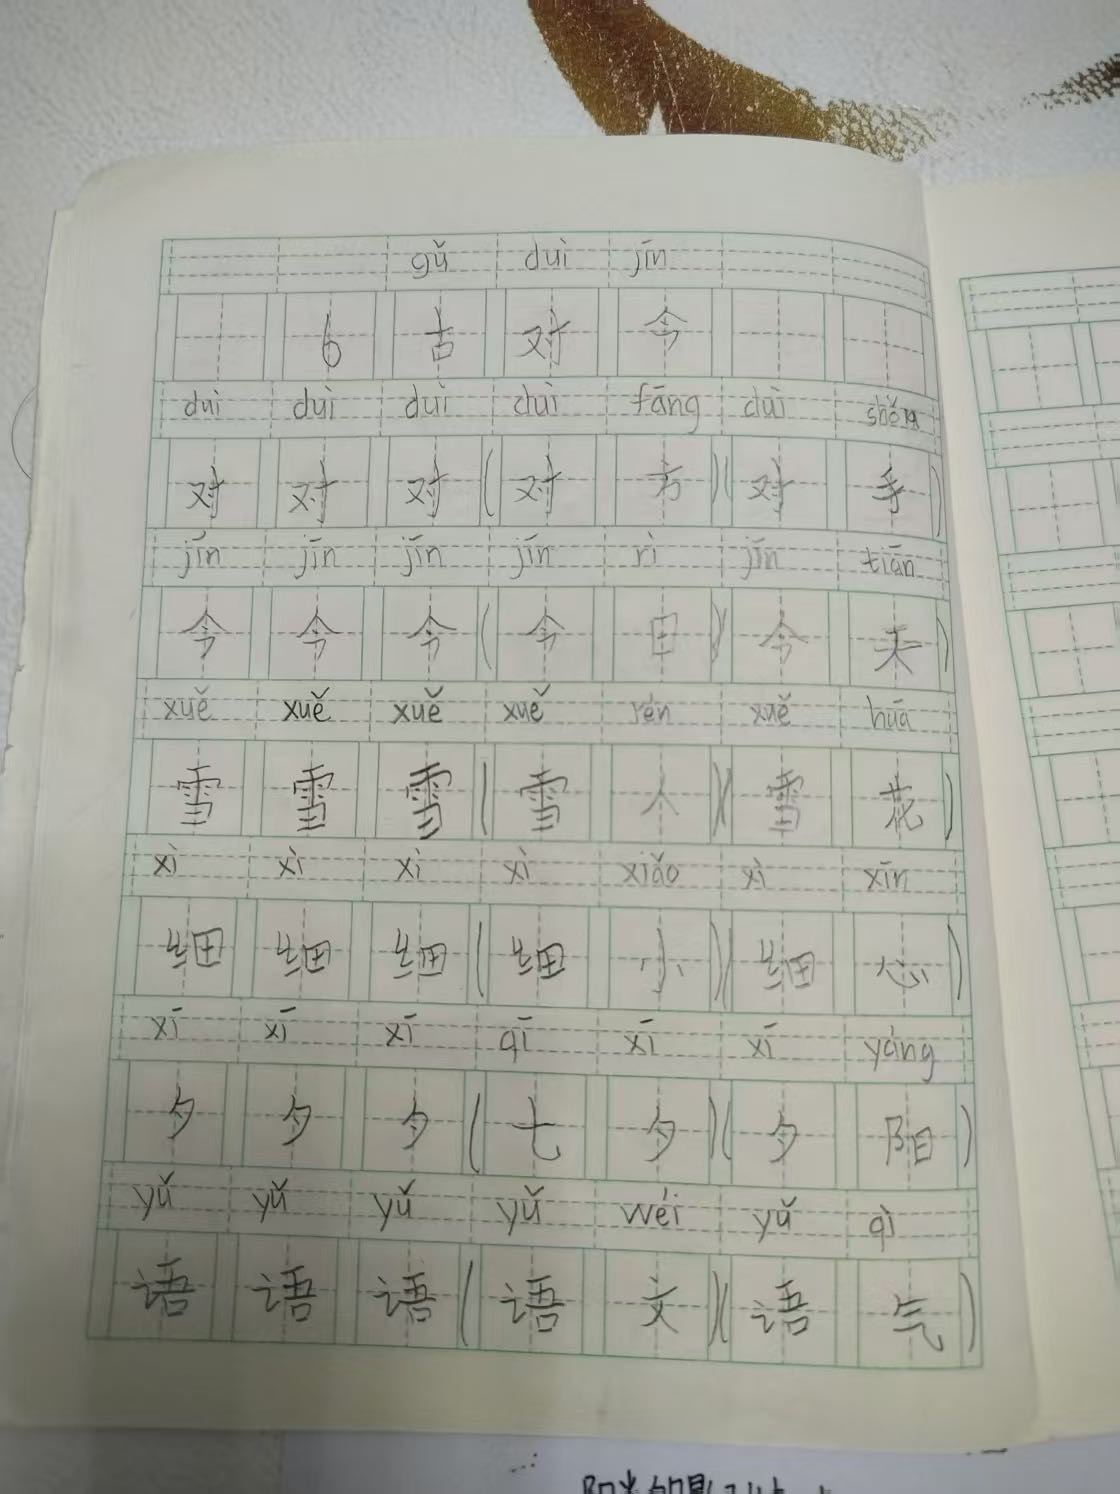 gǔ duì jīn
6 古 对 今
duì duì duì duì fāng duì shǒu
对 对 对 ( 对 方 )( 对 手 )
jīn jīn jīn jīn rì jīn tiān
今 今 今 ( 今 日 )( 今 天 )
xuě xuě xuě xuě rén xuě huā
雪 雪 雪 ( 雪 人 )( 雪 花 )
xì xì xì xì xiǎo xì xīn
细 细 细 ( 细 小 )( 细 心 )
xī xī xī qī xī xī yáng
夕 夕 夕 ( 七 夕 )( 夕 阳 )
yǔ yǔ yǔ yǔ wéi yǔ qì
语 语 语 ( 语 文 )( 语 气 )